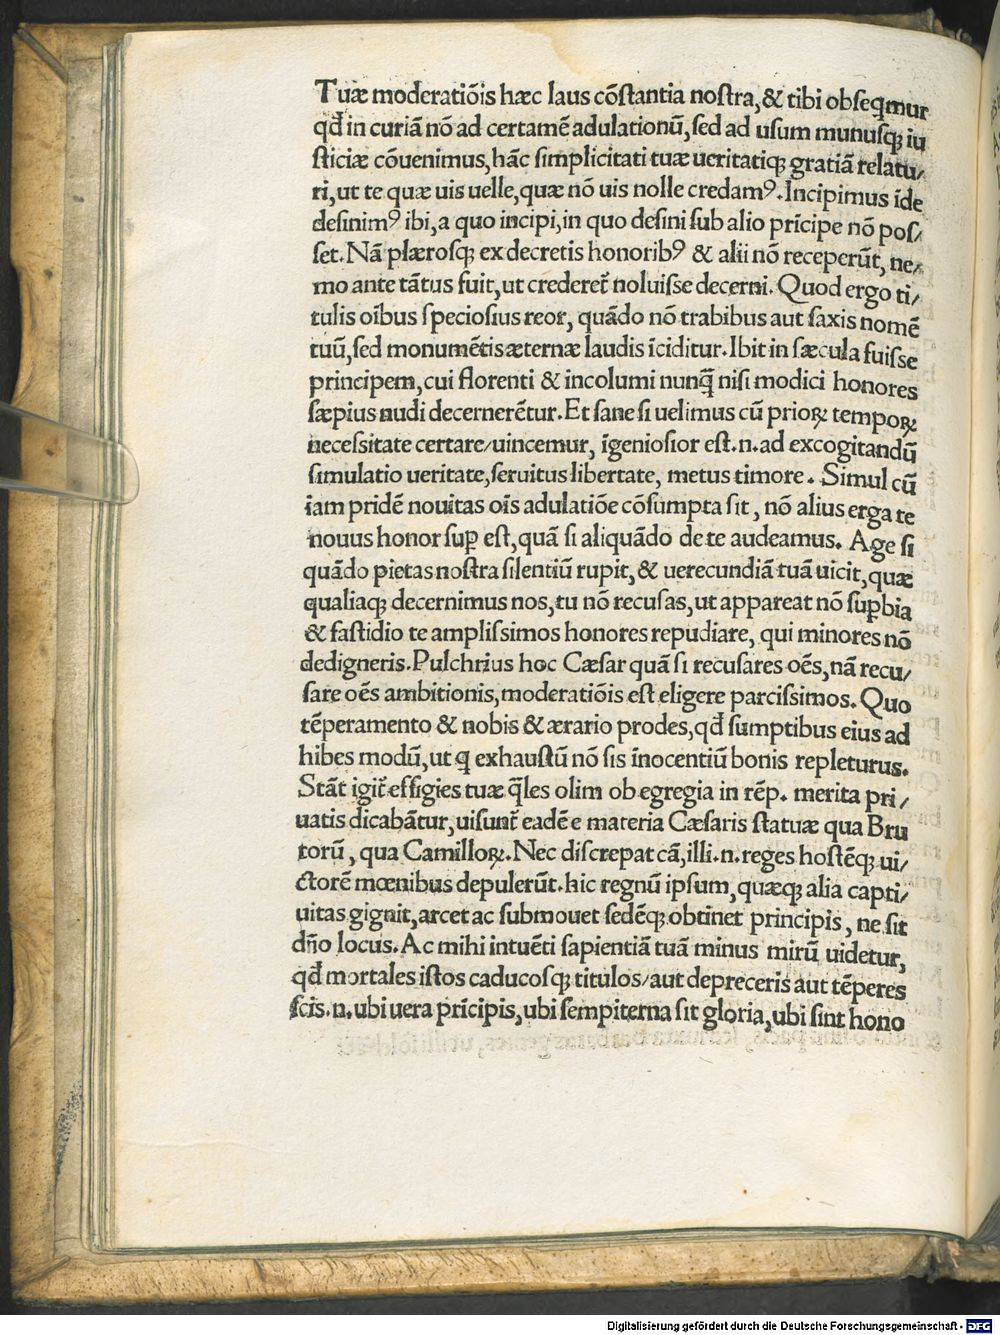 Tuæ moderatiōis hæc laus cōſtantia noſtra,& tibi obſeqmur
qđ in curiā nō ad certamē adulationū,ſed ad uſum munuſꝗ iu
ſticiæ cōuenimus,hāc ſimplicitati tuæ ueritatiꝗ gratiā relatu/
ri,ut te quæ uis uelle,quæ nō uis nolle credamꝰ.Incipimus īde
deſinimꝰ ibi,a quo incipi,in quo deſini ſub alio prīcipe nō poſ/
ſet.Nā plæroſꝗ ex decretis honoribꝰ & alii nō receperūt, ne/
mo ante tātus fuit,ut crederet̃ noluiſse decerni.Quod ergo ti/
tulis oībus ſpecioſius reor, quādo nō trabibus aut ſaxis nomē
tuū,ſed monumētis æternæ laudis īciditur.Ibit in ſæcula fuiſse
principem,cui florenti & incolumi nunq̄ niſi modici honores
ſæpius nudi decernerētur.Et ſane ſi uelimus cū prioꝝ tempoꝝ
neceſsitate certare/uincemur, īgenioſior eſt.n.ad excogitandū
ſimulatio ueritate,ſeruitus libertate, metus timore. Simul cū
iam pridē nouitas oīs adulatiōe cōſumpta ſit, nō alius erga te
nouus honor ſuꝑ eſt,quā ſi aliquādo de te audeamus. Age ſi
quādo pietas noſtra ſilentiū rupit,& uerecundiā tuā uicit,quæ
qualiaꝗ decernimus nos,tu nō recuſas,ut appareat nō ſuꝑbia
& faſtidio te ampliſsimos honores repudiare, qui minores nō
dedigneris.Pulchrius hoc Cæſar quā ſi recuſares oēs,nā recu/
ſare oēs ambitionis,moderatiōis eſt eligere parciſsimos. Quo
tēperamento & nobis & ærario prodes,qđ ſumptibus eius ad
hibes modū,ut q exhauſtū nō ſis īnocentiū bonis repleturus.
Stāt igit̃ effigies tuæ q̄les olim ob egregia in rēp. merita pri/
uatis dicabātur,uiſunt̃ eadē e materia Cæſaris ſtatuæ qua Bru
torū, qua Camilloꝝ.Nec diſcrepat cā,illi.n.reges hoſtēꝗ ui/
ctorē mœnibus depulerūt.hic regnū ipſum,quæꝗ alia capti/
uitas gignit,arcet ac ſubmouet ſedēꝗ obtinet principis, ne ſit
dn̄o locus.Ac mihi intuēti ſapientiā tuā minus mirū uidetur,
qđ mortales iſtos caducoſꝗ titulos/aut depreceris aut tēperes
ſcis.n.ubi uera prīcipis,ubi ſempiterna ſit gloria,ubi ſint hono
Digitalisierung gefördert durch die Deutsche Forschungsgemeinschaft - DFG